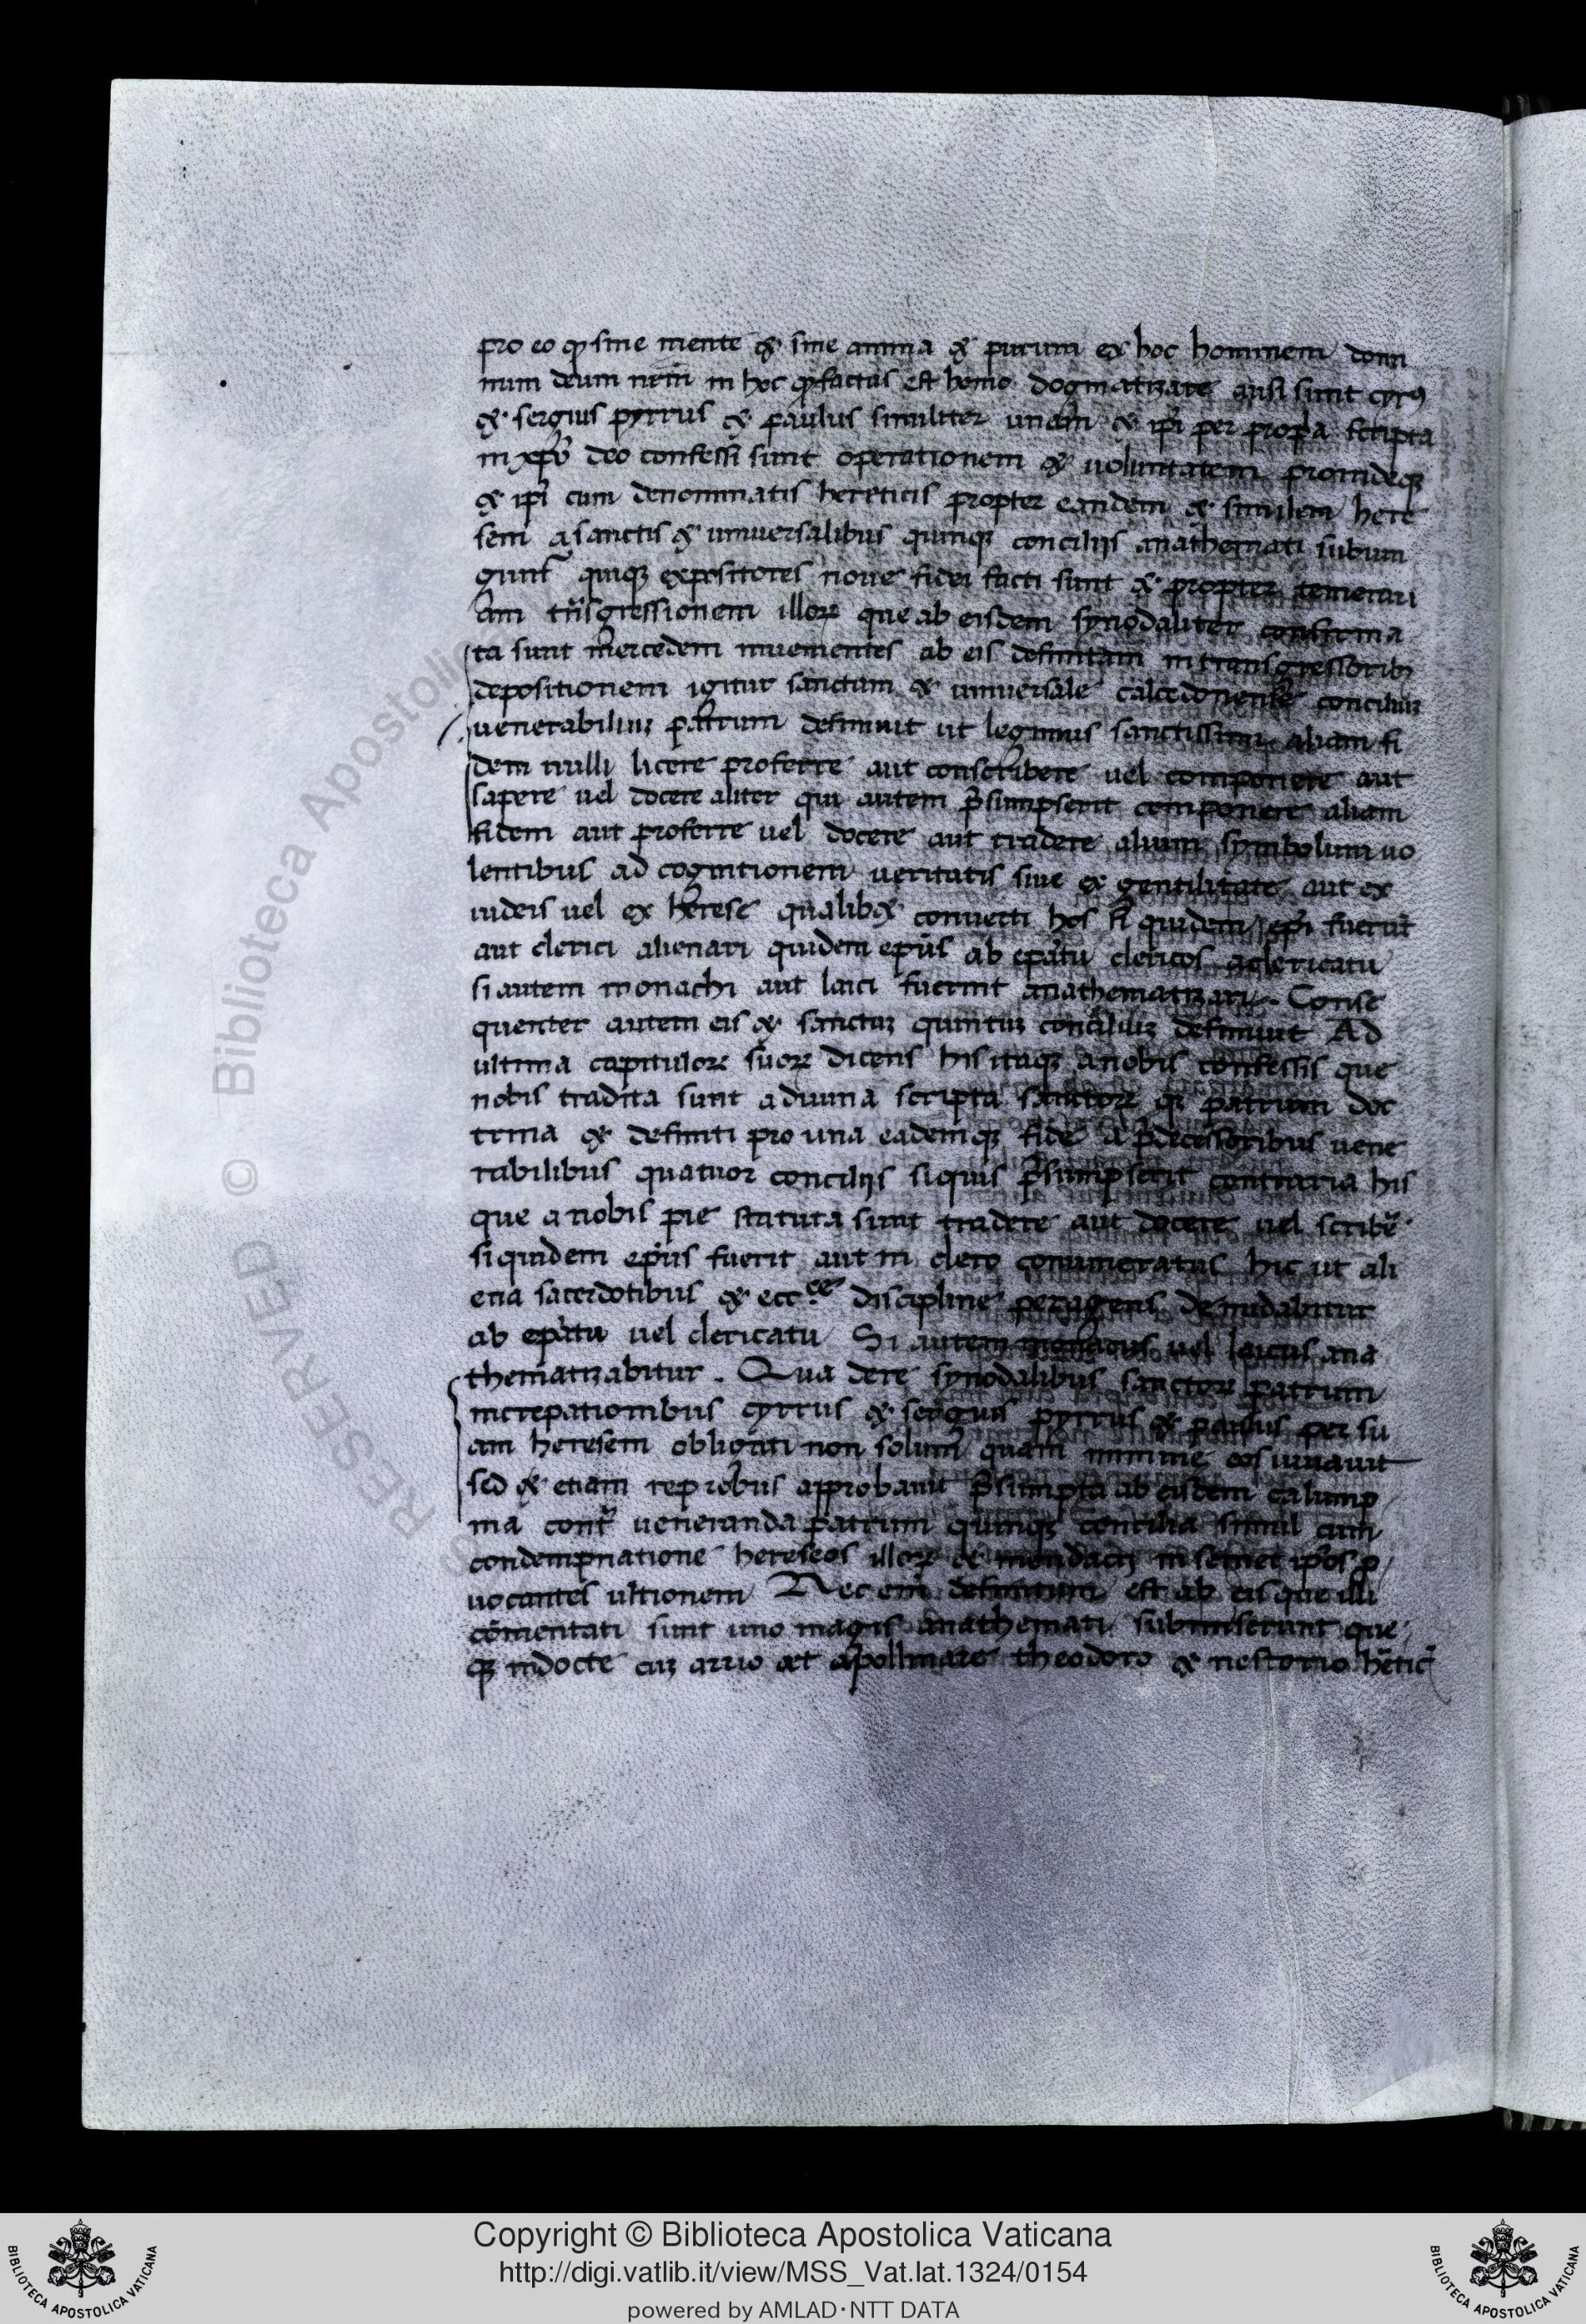 pro eo qꝫ sine mente & sine anima & purum ex hoc hominem domi
num deum nr̄m in hoc qꝫ factus est homo dogmatizare ausi sunt cyrꝰ
& sergius pyrrus & paulus similiter unam & ip̄i per prop̄a scripta
in xp̄o deo confessi sunt operationem & uoluntatem proindeqꝫ
& ip̄i cum denominatis hereticis propter eandem & similem here
sem a sanctis & uniuersalibus quinqꝫ concilijs anathemati subium
gunt̄ quiqꝫ expositores noue fidei facti sunt & propter temerari
am trn̄sgressionem illoꝝ que ab eisdem synodaliter confirma
ta sunt mercedem inuenientes ab eis definitam in transgressoribꝫ
depositionem igitur sanctum & uniuersale calcedonense conciliuꝫ
uenerabiliuꝫ patrum definiuit ut legimus sanctissimi aliam fi
dem nulli licere proferre aut conscribere uel componere aut
sapere uel docere aliter qui autem p̄sumpserit componere aliam
fidem aut proferre uel docere aut tradere alium symbolum uo
lentibus ad cognitionem ueritatis siue ex gentilitate aut ex
iudeis uel ex herese qualib& conuerti hos si quidem ep̄i fuerūt
aut clerici alienari quidem ep̄us ab ep̄atu clericos a clericatu
si autem monachi aut laici fuerint anathematizari. Conse
quenter autem eis & sanctuꝫ quintuꝫ conciliuꝫ definiuit Ad
ultima capituloꝝ suoꝝ dicens his itaqꝫ a nobis confessis que
nobis tradita sunt a diuina scripta sanctoꝝ qꝫ patrum doc
trina & definiti pro una eademqꝫ fide a p̄decessoribus uene
rabilibus quatuor concilijs siquis p̄sumpserit contraria his
que a nobis pie statuta sunt tradere aut docere uel scribē
siquidem ep̄us fuerit aut in clero conumeratus hic ut ali
ena sacerdotibus & ecc.ᶜᵉ discipline peragens denudabitur
ab ep̄atu uel clericatu Si autem monacus uel laicus ana
thematizabitur. Qua dere synodalibus sanctoꝝ patrum
increpationibus cyrrus & sergius pyrrus & paulus per su
am heresem obligati non solum quam minime eos iuuauit
sed & etiam reprobus approbauit p̄sumpta ab eisdem calump
nia contr̄ ueneranda patrum quinqꝫ concilia simul cum
condempnatione hereseos illoꝝ & mendacij in semet ip̄os ꝓ
uocantes ultionem Nec em̄ definitum est ab eis que illi
cōmentati sunt uno magis anathemati submiserunt que
qꝫ indocte cuꝫ arrio et apollinare theodoro & nestorio hētic̄
Copyright © Biblioteca Apostolica Vaticana
http://digi.vatlib.it/view/MSS_Vat.lat.1324/0154
powered by AMLAD·NTT DATA
BIBLIOTECA APOSTOLICA VATICANA
BIBLIOTECA APOSTOLICA VATICANA